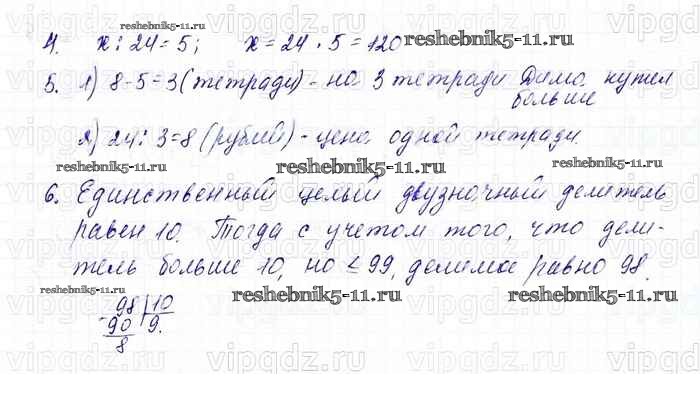 4. x : 24 = 5; x = 24 · 5 = 120
5. 1) 8 - 5 = 3 (тетради) - на 3 тетради Дима купил
больше
2) 24 : 3 = 8 (рублей) - цена одной тетради.
6. Единственный целый двузначный делитель
равен 10. Тогда с учетом того, что дели-
тель больше 10, но ≤ 99, делимое равно 98.
- 98 | 10
90 9.
8
reshebnik5-11.ru
reshebnik5-11.ru
reshebnik5-11.ru
reshebnik5-11.ru
reshebnik5-11.ru
reshebnik5-11.ru
reshebnik5-11.ru
vipgdz.ru